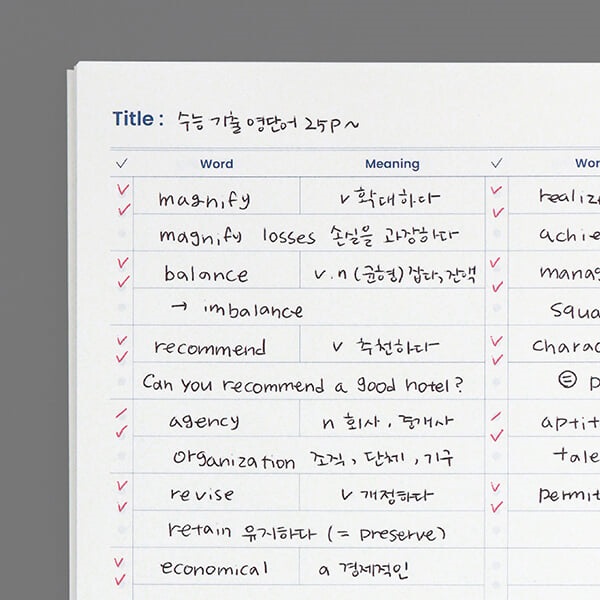 Title : 수능 기출 영단어 25p~
✓ Word Meaning ✓ Wor
magnify v 확대하다 realiz
magnify losses 손실을 과장하다 achie
balance v.n (균형) 잡다, 잔액 manag
→ imbalance squa
recommend v 추천하다 charac
Can you recommend a good hotel? ⊜ p
agency n 회사, 중개사 aptit
organization 조직, 단체, 기구 tale
revise v 개정하다 permit
retain 유지하다 (= preserve)
economical a 경제적인